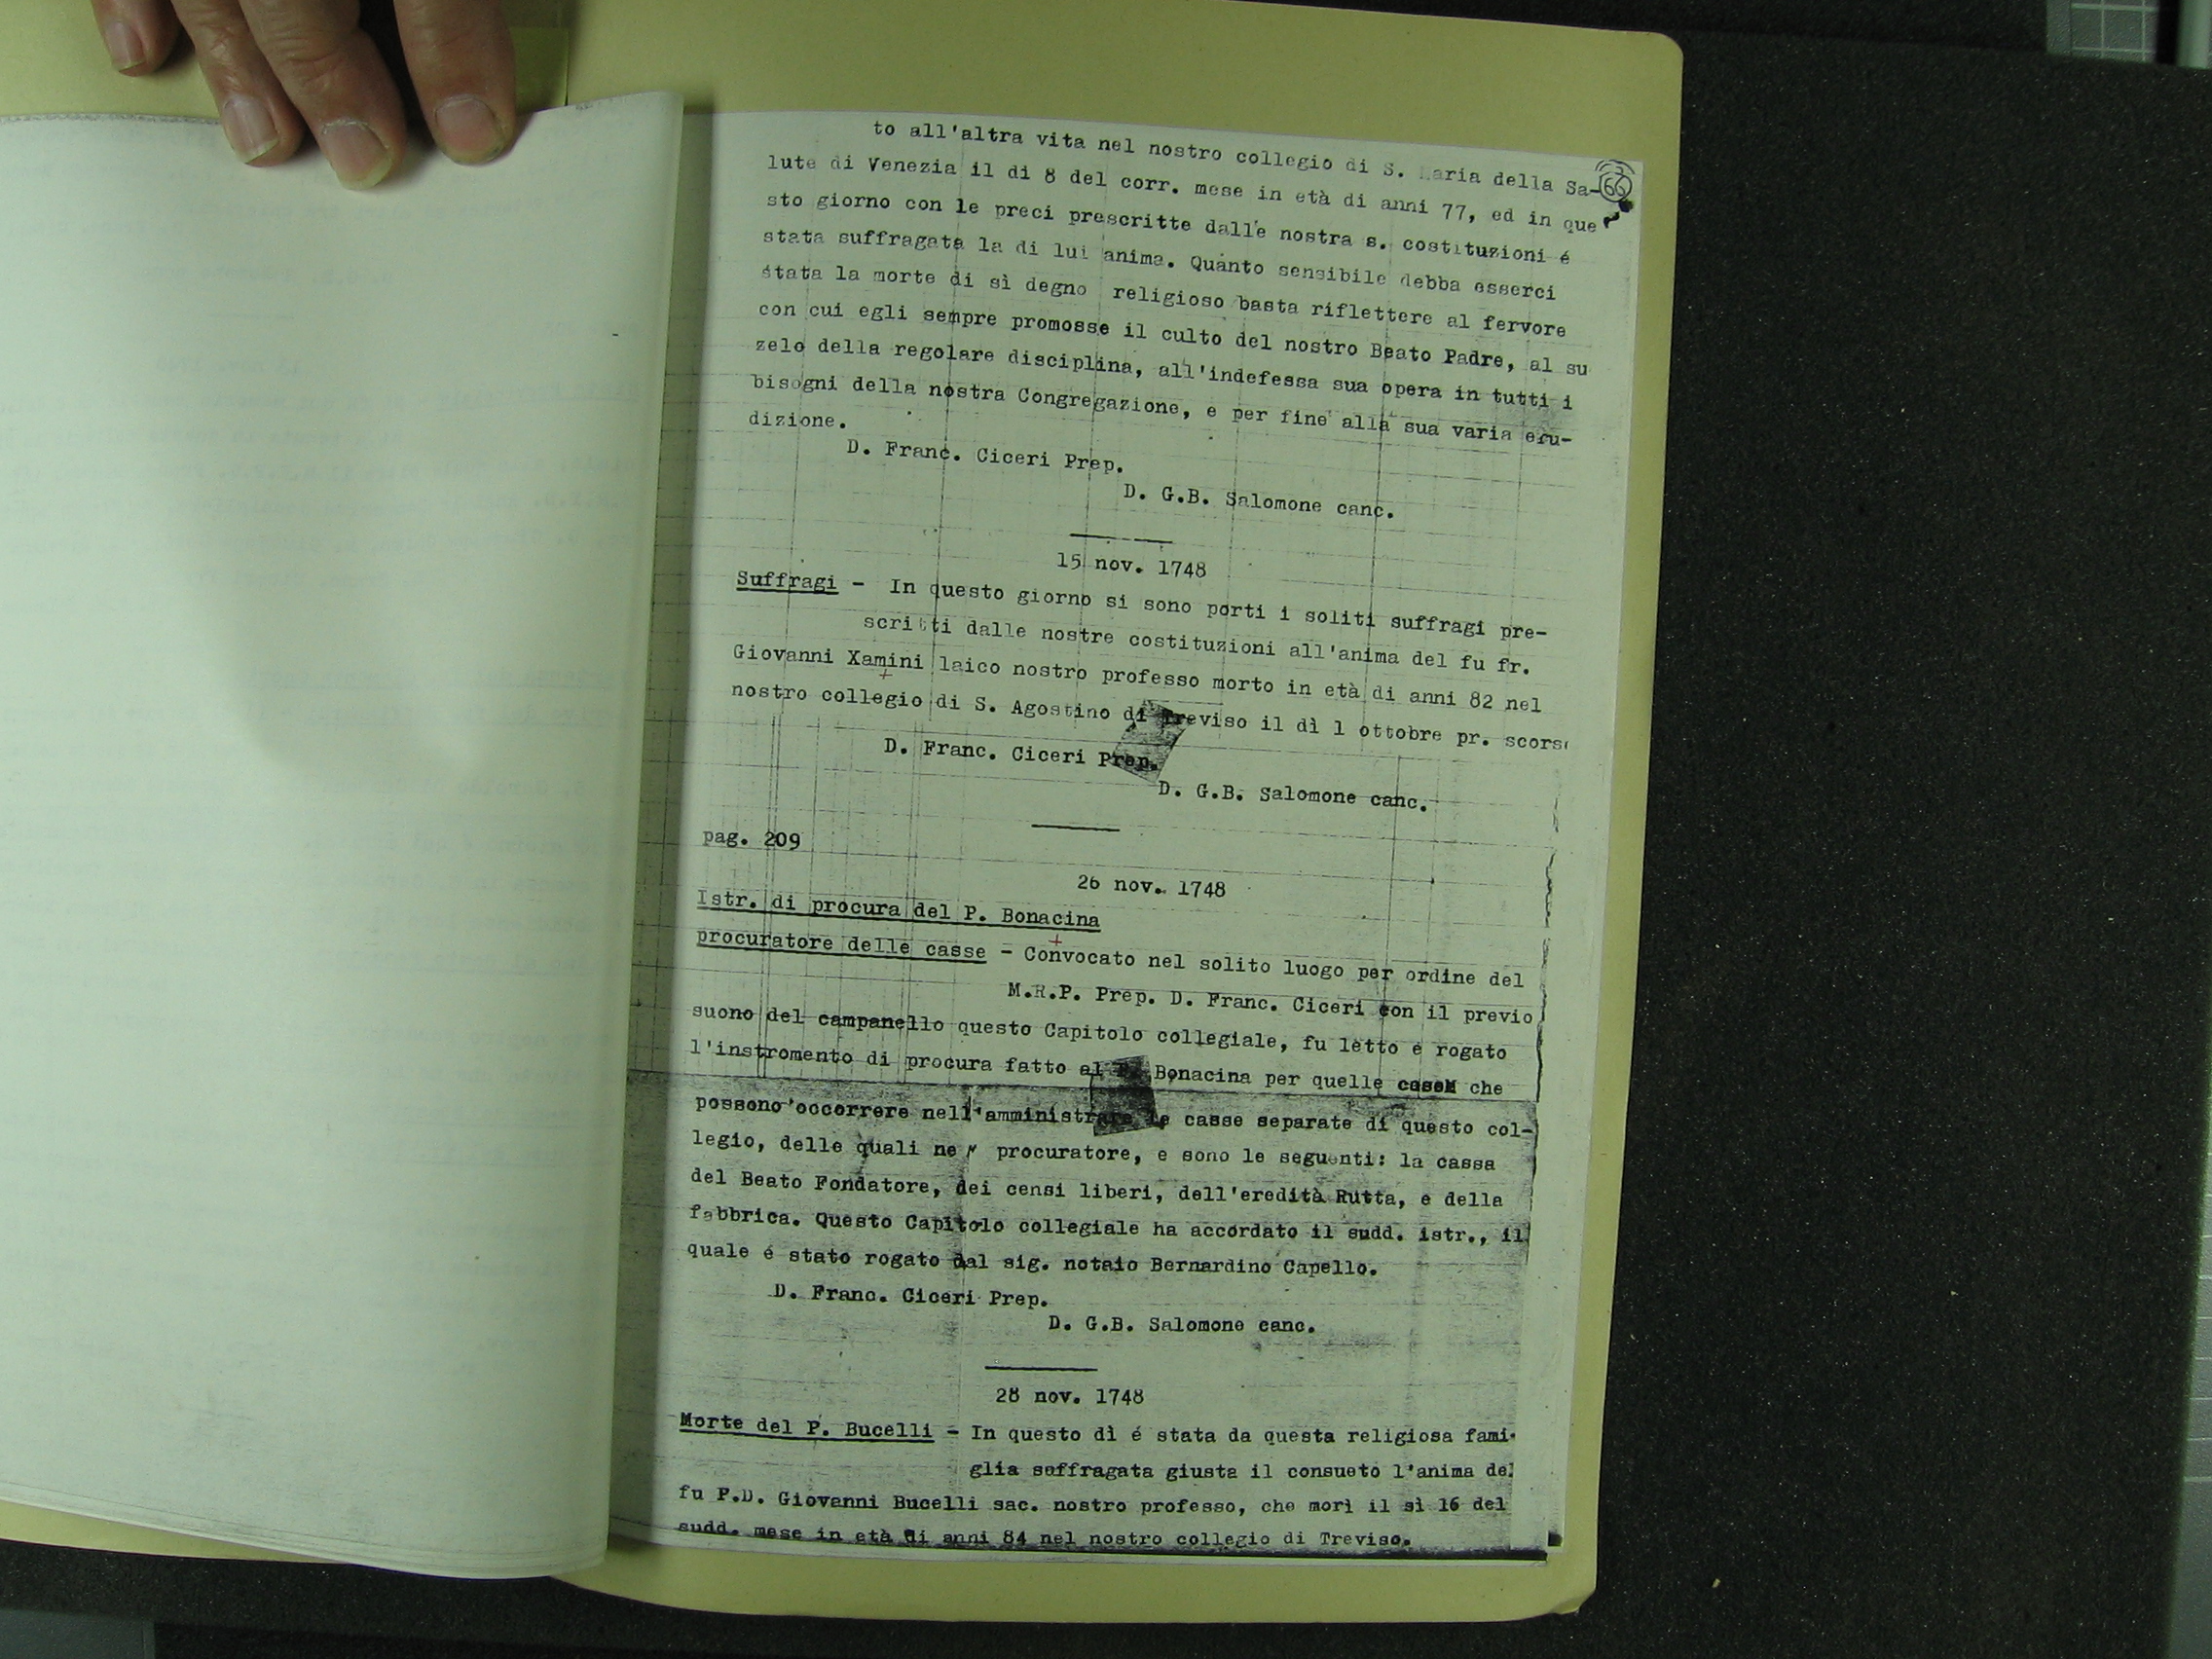 66
to all'altra vita nel nostro collegio di S. Maria della Sa-
lute di Venezia il di 8 del corr. mese in età di anni 77, ed in que
sto giorno con le preci prescritte dalle nostra s. costituzioni é
stata suffragata la di lui anima. Quanto sensibile debba esserci
stata la morte di sì degno religioso basta riflettere al fervore
con cui egli sempre promosse il culto del nostro Beato Padre, al su
zelo della regolare disciplina, all'indefessa sua opera in tutti i
bisogni della nostra Congregazione, e per fine alla sua varia eru-
dizione.
D. Franc. Ciceri Prep.
D. G.B. Salomone canc.
15 nov. 1748
Suffragi - In questo giorno si sono porti i soliti suffragi pre-
scritti dalle nostre costituzioni all'anima del fu fr.
Giovanni Xamini laico nostro professo morto in età di anni 82 nel
nostro collegio di S. Agostino di Treviso il dì 1 ottobre pr. scorso
D. Franc. Ciceri Prep.
D. G.B. Salomone canc.
pag. 209
26 nov. 1748
Istr. di procura del P. Bonacina
procuratore delle casse - Convocato nel solito luogo per ordine del
M.R.P. Prep. D. Franc. Ciceri con il previo
suono del campanello questo Capitolo collegiale, fu letto e rogato
l'instromento di procura fatto al P. Bonacina per quelle che
possono occorrere nell'amministrare le casse separate di questo col-
legio, delle quali ne procuratore, e sono le seguenti: la cassa
del Beato Fondatore, dei censi liberi, dell'eredità Rutta, e della
fabbrica. Questo Capitolo collegiale ha accordato il sudd. istr., il
quale é stato rogato dal sig. notaio Bernardino Capello.
D. Franc. Ciceri Prep.
D. G.B. Salomone canc.
28 nov. 1748
Morte del P. Bucelli - In questo dì é stata da questa religiosa fami-
glia soffragata giusta il consueto l'anima del
fu P.D. Giovanni Bucelli sac. nostro professo, che morì il sì 16 del
sudd. mese in età di anni 84 nel nostro collegio di Treviso.